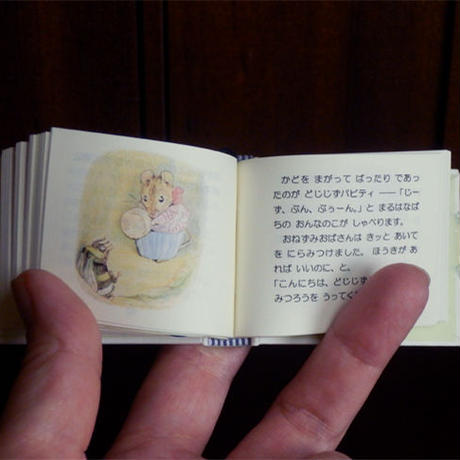 かどを まがって ばったり であっ
たのが どじじずバビティ ――「じー
ず、ぶん、ぶぅーん。」と まるはなば
ちの おんなのこが しゃべります。
おねずみおばさんは きッと あいて
を にらみつけました。ほうきが あ
れば いいのに、と。
「こんにちは、どじじず
みつろうを うってく